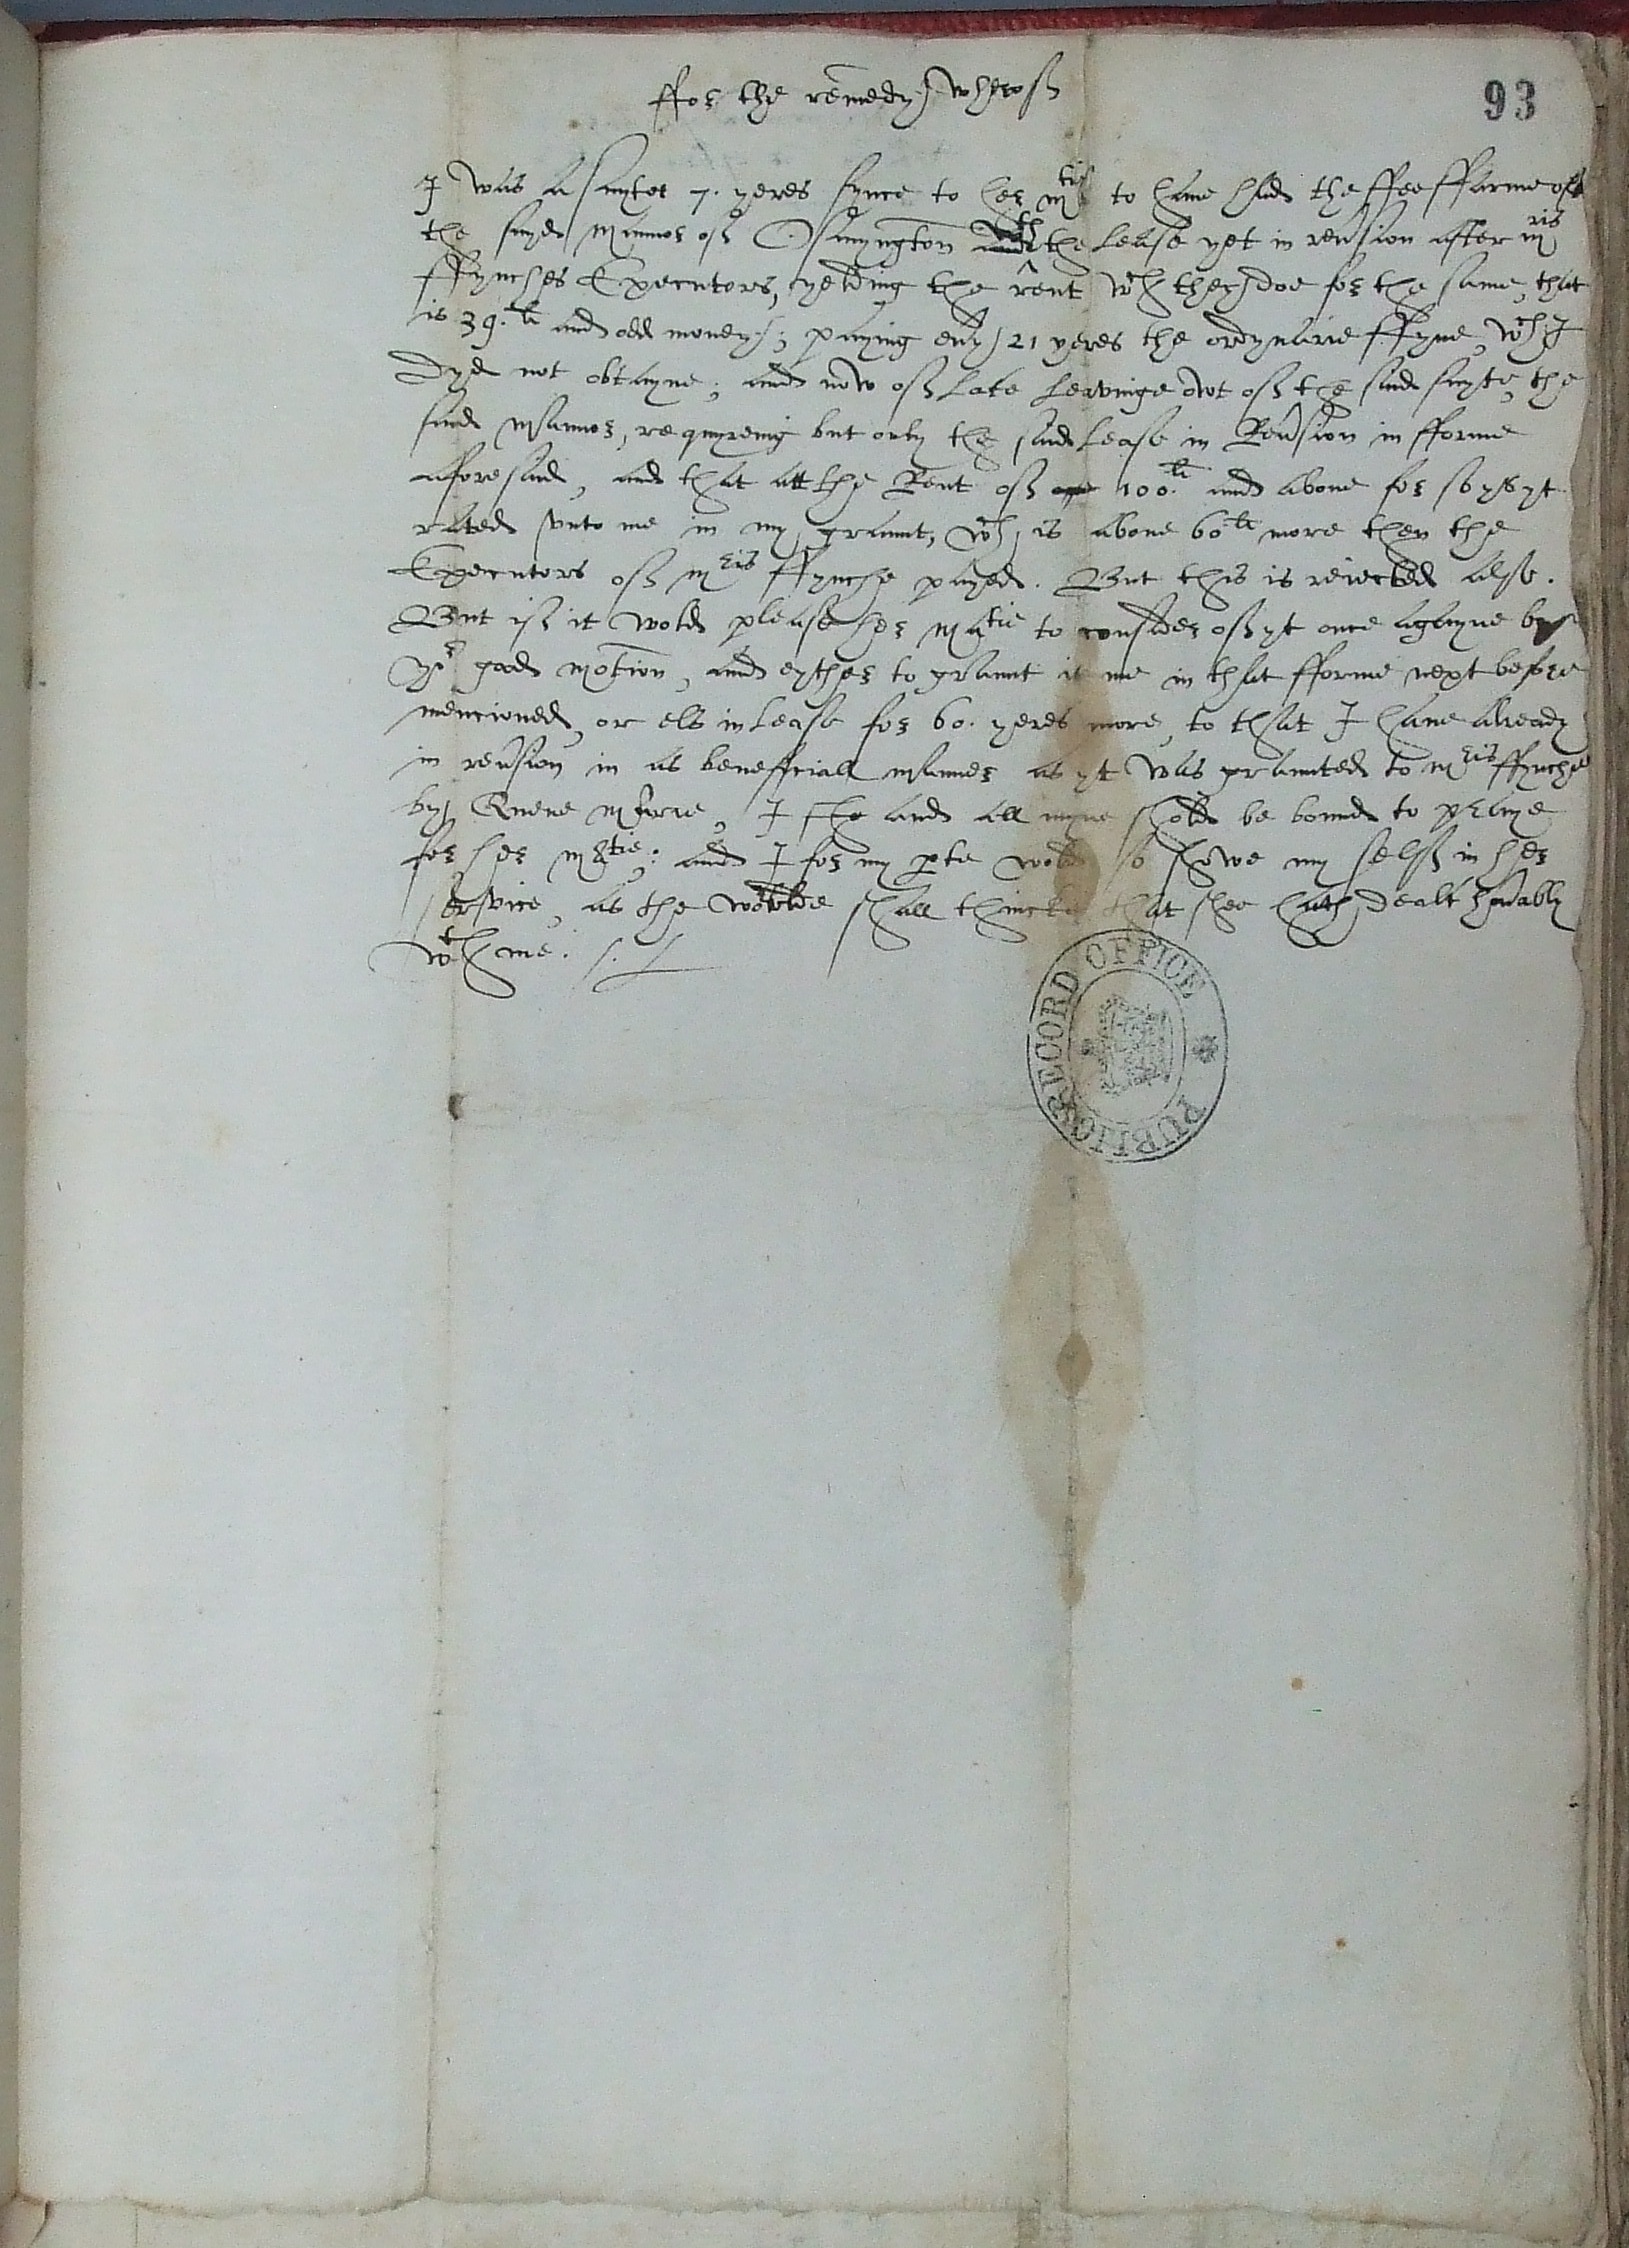 ffor the remedy wherof
93
I was a suyter 7. yeres synce to her mtie to haue had the ffee ffarme off
the sayd mannor off Ossington wth the Lease yet in reu̾sion after mris
ffynches Executors, yelding the rent wch they doe for the same, that
is 39.li and odd money; paying eu̾y 21 yeres the ordynarie ffyne, wch I
dyd not obtayne; and now off late leavinge owt off the said suyte, the
said mannor, requyreing but only the said Lease in Reu̾sion in fforme
aforesaid, and that att the Rent off 100.li and aboue for so ys yt
rated vnto me in my graunt, wch is aboue 60li more then the
Executors off mris ffynche payed. But this is reiected also.
But iff it wold please her matie to consider off yt once agayne by
yor good motion, and eyther to graunt it me in that fforme next before
mencioned, or els in Lease for 60. yeres more, to that I haue already
in reu̾sion in as benefficiall manner as yt was graunted to mris ffynche
by Quene marie, I she and all myne shold be bound to praye
for her matie: and I for my p̱te wold so showe my selff in her
service, as the worlde shall thincke that shee hath dealt ho̅rably
wth me.
PUBLIC RECORD OFFICE